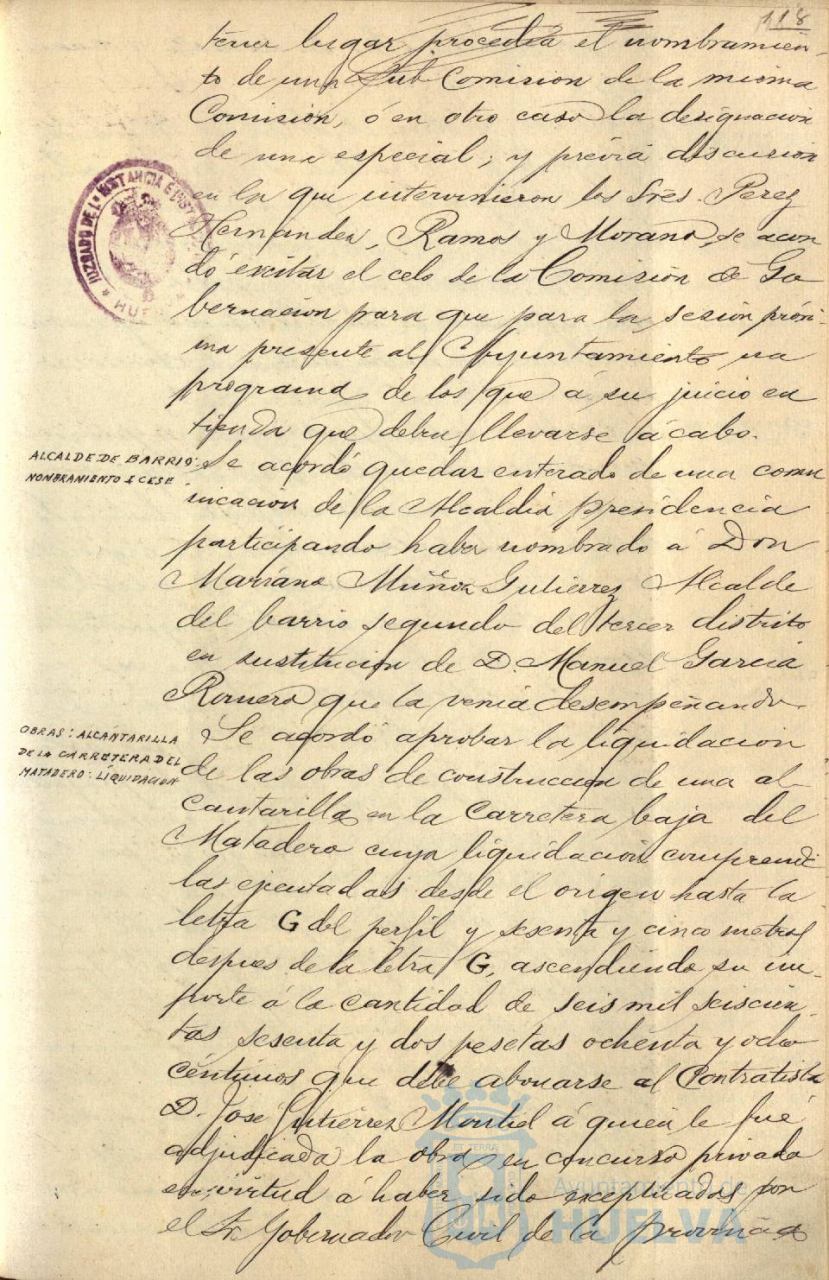 118
tener lugar procedia el nombramien-
to de una Sub Comision de la misma
Comision, ó en otro caso la designacion
de una especial; y prévia discusion
en la que intervinieron los Sres. Perez
Hernandez, Ramos y Morano, se acor
dó excitar el celo de la Comisión de Go
bernacion para que para la sesión próxi
ma presente al Ayuntamiento un
programa de los que á su juicio en
tienda que deben llevarse á cabo.
ALCALDE DE BARRIO:
NOMBRAMIENTO & CESE
Se acordó quedar enterado de una comu
nicacion de la Alcaldia presidencia
participando haber nombrado á Don
Mariano Muñoz Gutiérrez Alcalde
del barrio segundo del tercer distrito
en sustitucion de D. Manuel Garcia
Romero que la venia desempeñando.
OBRAS: ALCANTARILLA
DE LA CARRETERA DEL
MATADERO: LIQUIDACION
Se acordó aprobar la liquidacion
de las obras de construccion de una al-
cantarilla en la Carretera baja del
Matadero cuya liquidacion comprende
las ejecutadas desde el origen hasta la
letra G del perfil y sesenta y cinco metros
despues de la letra G, ascendiendo su im-
porte á la cantidad de seis mil seiscien-
tas sesenta y dos pesetas ochenta y ocho
céntimos que debe abonarse al Contratista
D. José Gutiérrez Montiel á quien le fué
adjudicada la obra en concurso privado
en virtud á haber sido exceptuadas por
el Sr. Gobernador Civil de la provincia
JUZGADO DE 1ª INSTANCIA E INSTRUCCION
HUELVA
Ayuntamiento de
HUELVA